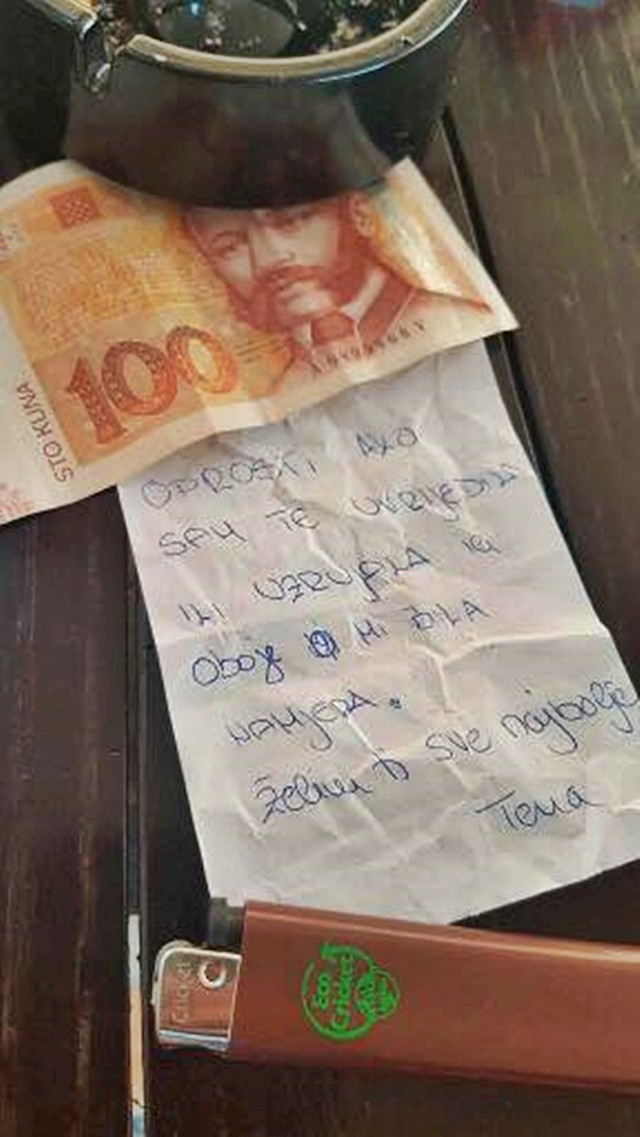 100
STO KUNA
OPROSTI AKO
SAM TE UVRIJEDILA
ILI UZRUJALA
OBOJE MI BILA
NAMJERA.
Želim ti sve najbolje
Tena
Cricket
Eco
Cricket